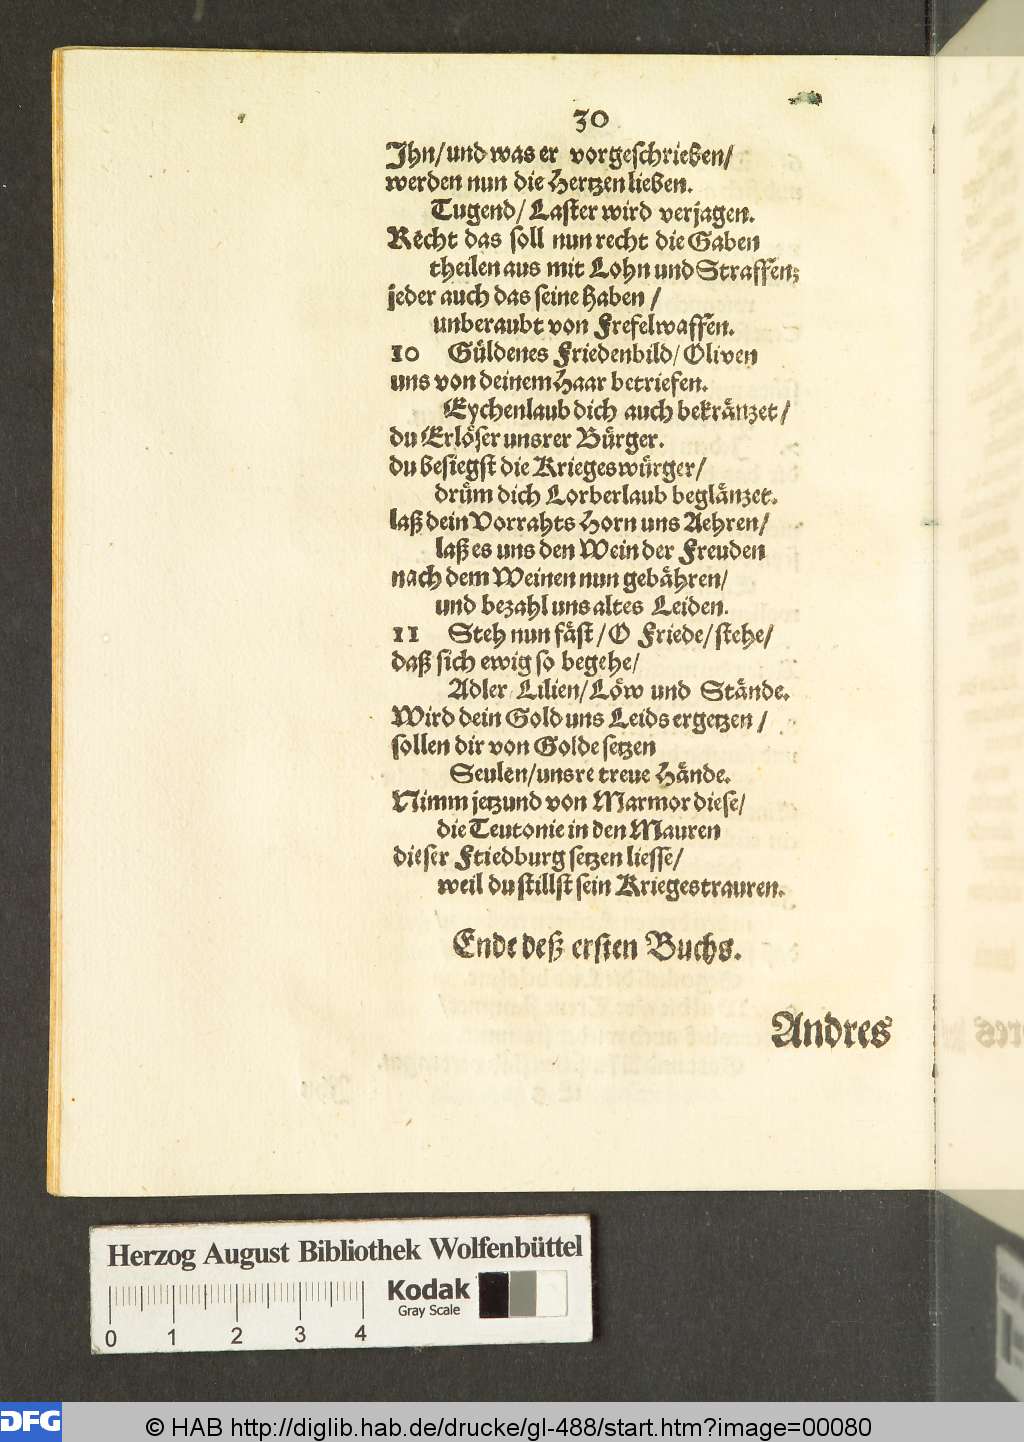 30
Ihn/und was er vorgeschrieben/
werden nun die Hertzen lieben.
Tugend/ Laster wird verjagen.
Recht das soll nun recht die Gaben
theilen aus mit Lohn und Straffen;
jeder auch das seine haben /
unberaubt von Frefelwaffen.
10 Güldenes Friedenbild/ Oliven
uns von deinem Haar betriefen.
Eychenlaub dich auch bekräntzet/
du Erlöser unsrer Bürger.
du besiegst die Kriegeswürger/
drüm dich Lorberlaub beglänzet.
laß dein Vorrahts Horn uns Aehren/
laß es uns den Wein der Freuden
nach dem Weinen nun gebähren/
und bezahl uns altes Leiden.
11 Steh nun fäst/ O Friede/ stehe/
daß sich ewig so begehe/
Adler Lilien/ Löw und Stände.
Wird dein Gold uns Leids ergetzen /
sollen dir von Golde setzen
Seulen/unsre treue Hände.
Nimm jetzund von Marmor diese/
die Teutonie in den Mauren
dieser Ftiedburg setzen liesse/
weil du stillst sein Kriegestrauren.
Ende deß ersten Buchs.
Andres
Herzog August Bibliothek Wolfenbüttel
Kodak
Gray Scale
0 1 2 3 4
DFG
© HAB http://diglib.hab.de/drucke/gl-488/start.htm?image=00080